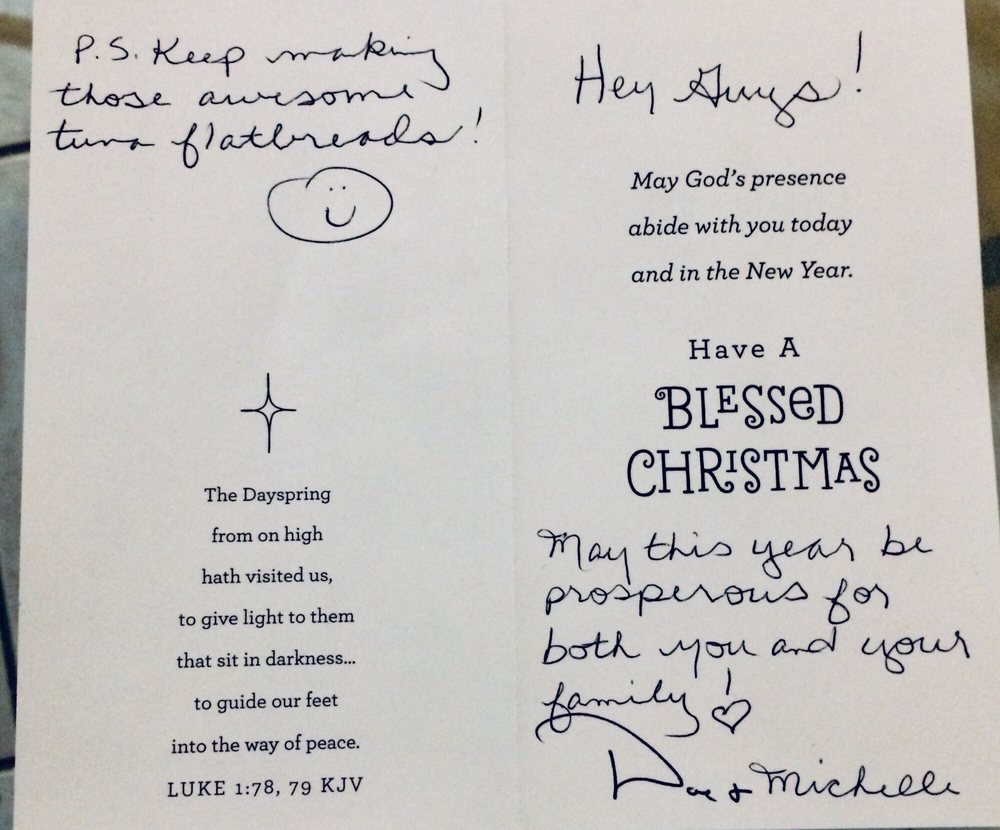 P.S. Keep making
those awesome
tuna flatbreads!
The Dayspring
from on high
hath visited us,
to give light to them
that sit in darkness...
to guide our feet
into the way of peace.
LUKE 1:78, 79 KJV
Hey Guys!
May God's presence
abide with you today
and in the New Year.
Have A
BLESSeD
CHRISTMAS
May this year be
prosperous for
both you and your
family!
& Michelle